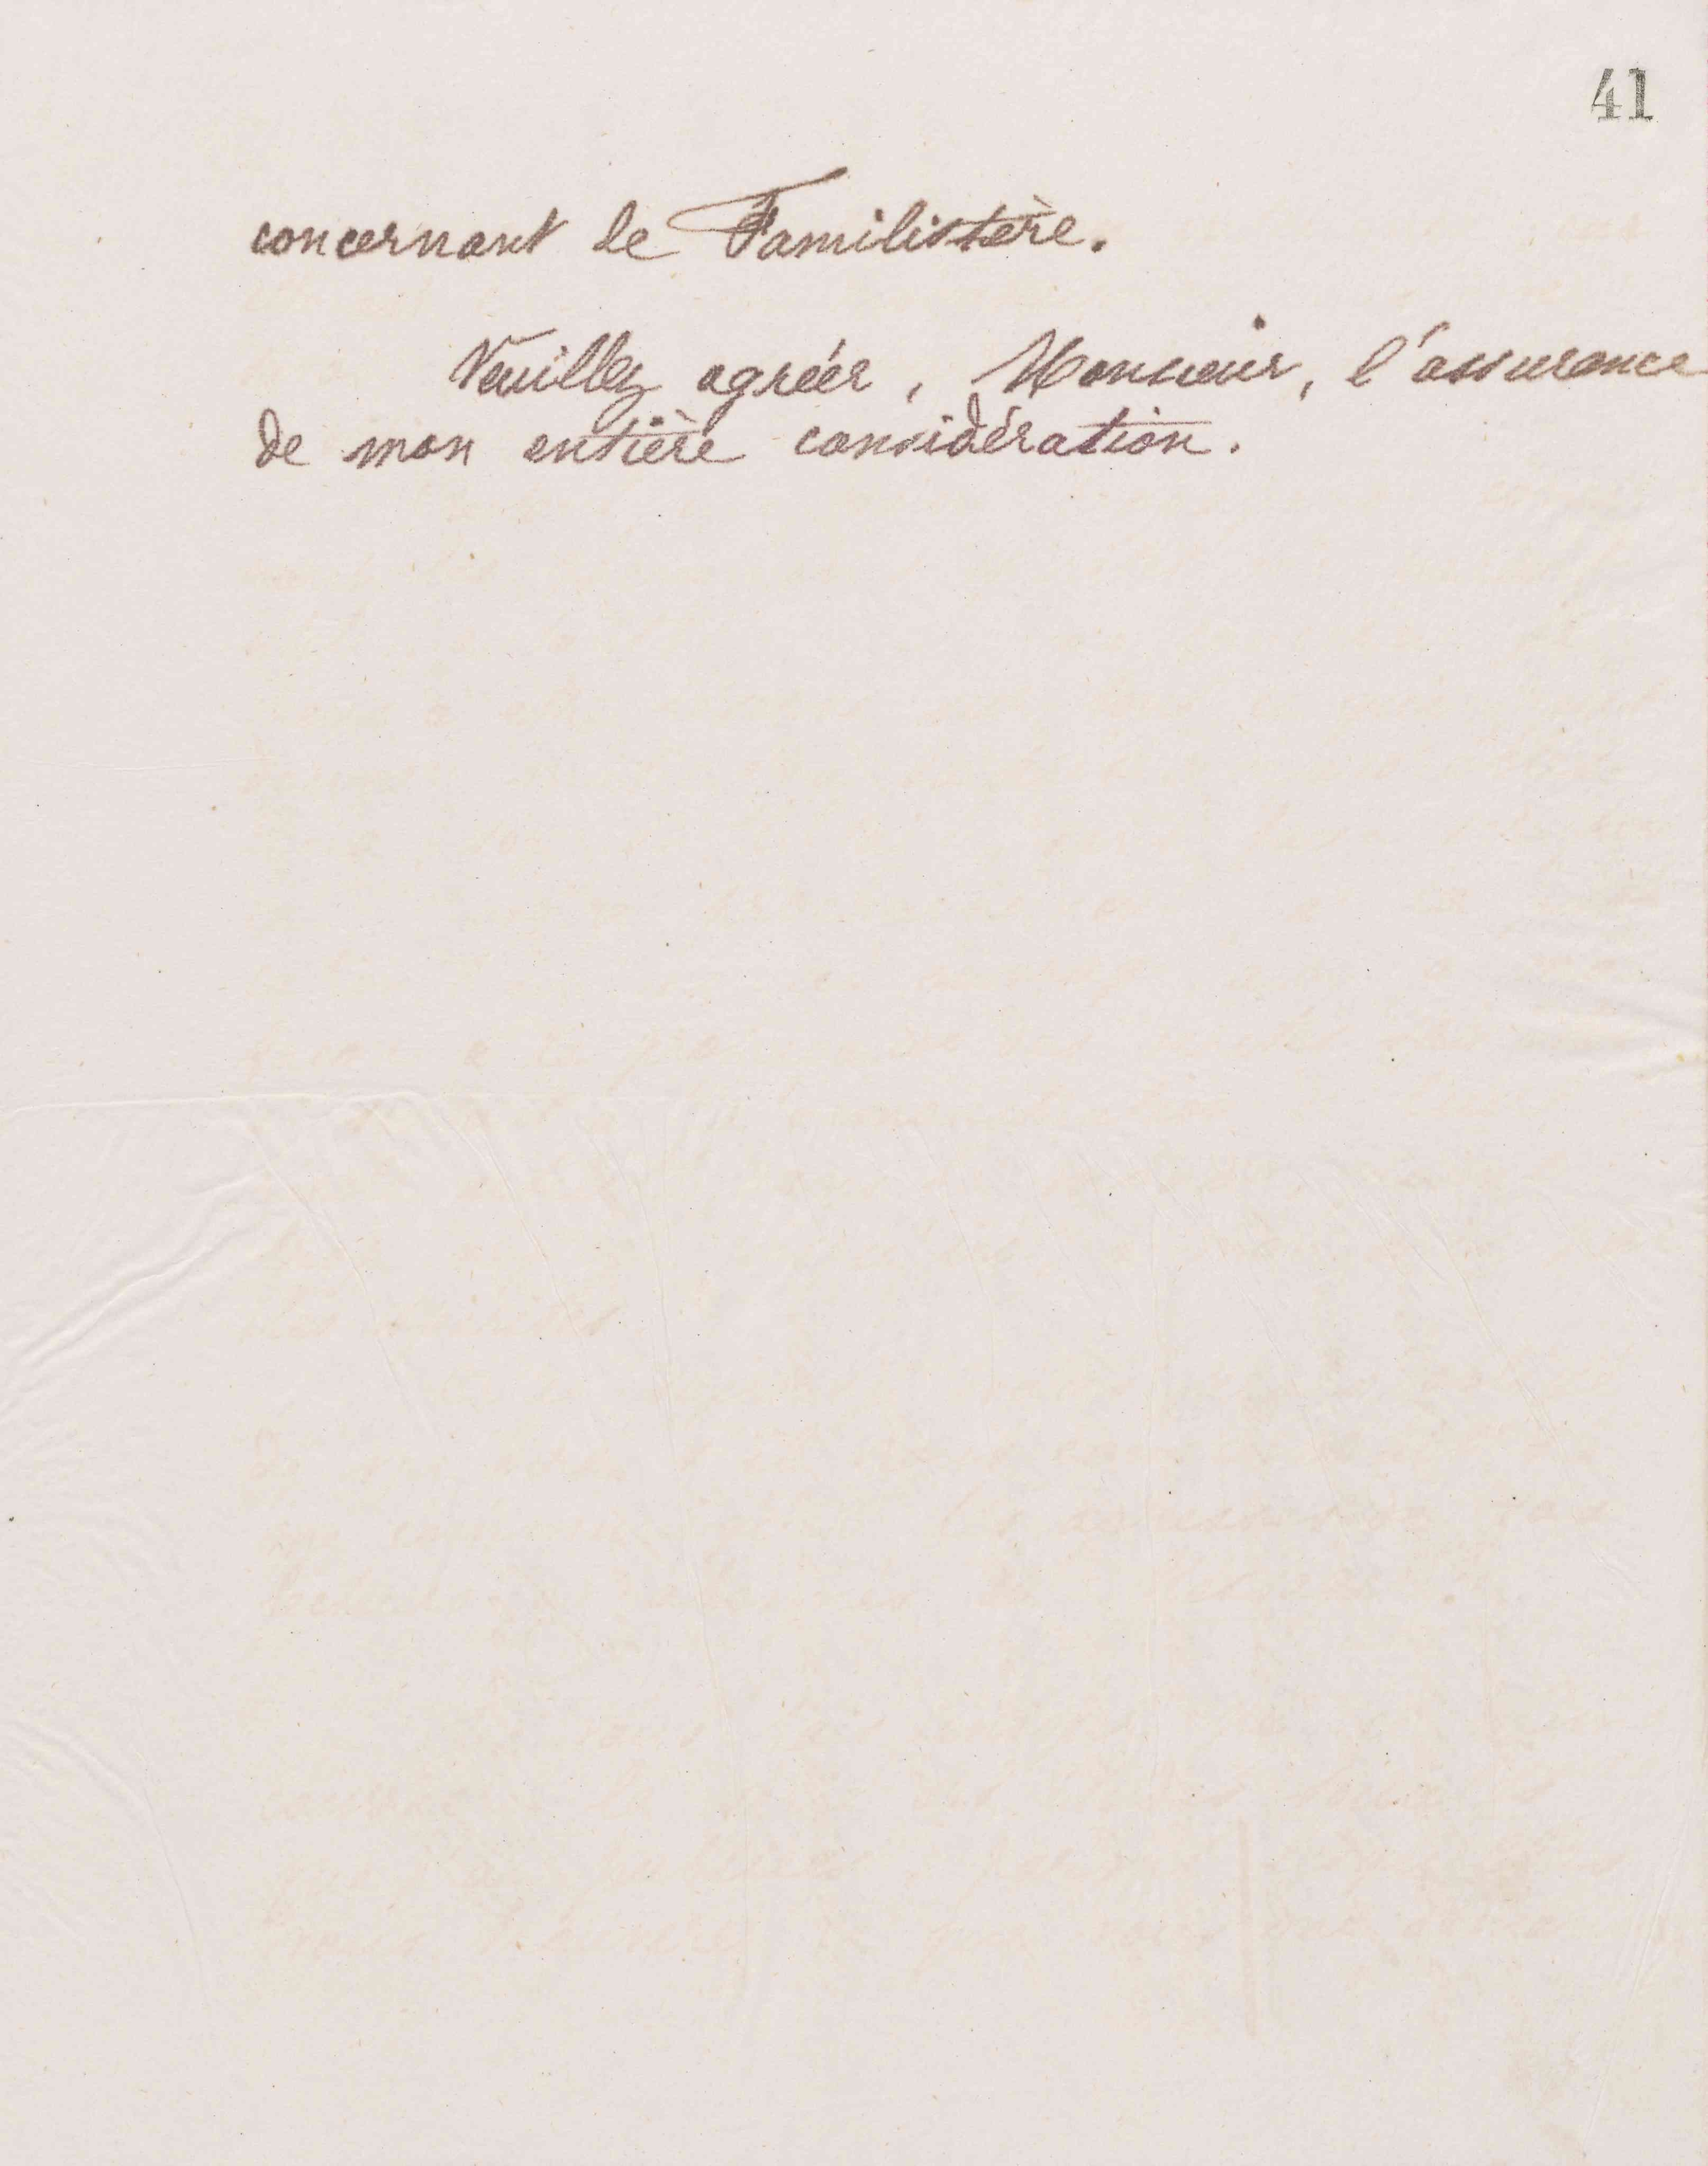 41
concernant le Familistère.
Veuillez agréer, Monsieur, l'assurance
de mon entière considération.